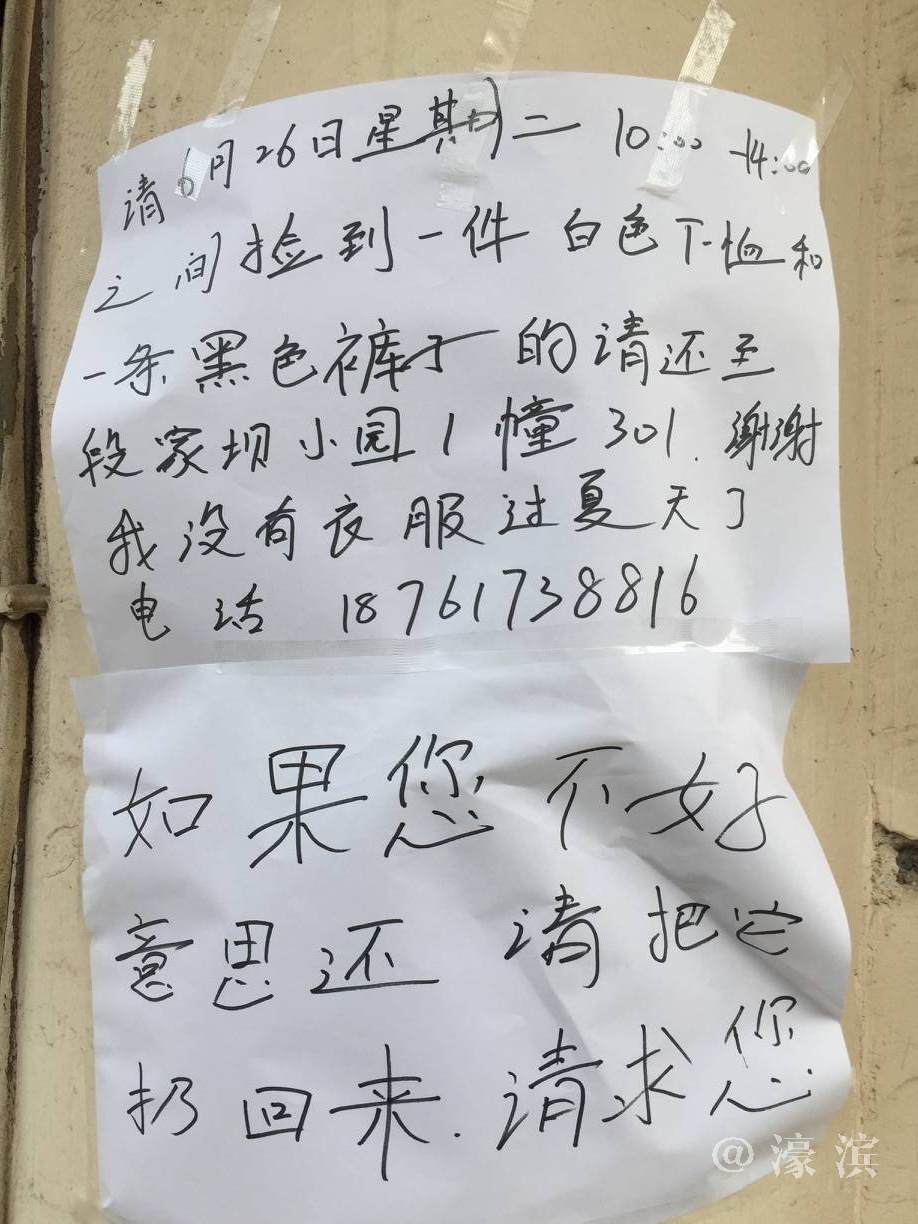 请6月26日星期二 10:00-14:00
之间捡到一件 白色T-恤和
一条黑色裤子 的请还至
段家坝小园1幢301.谢谢
我没有衣服过夏天了
电话 18761738816
如果您不好
意思还 请把它
扔回来.请求您
@濠滨